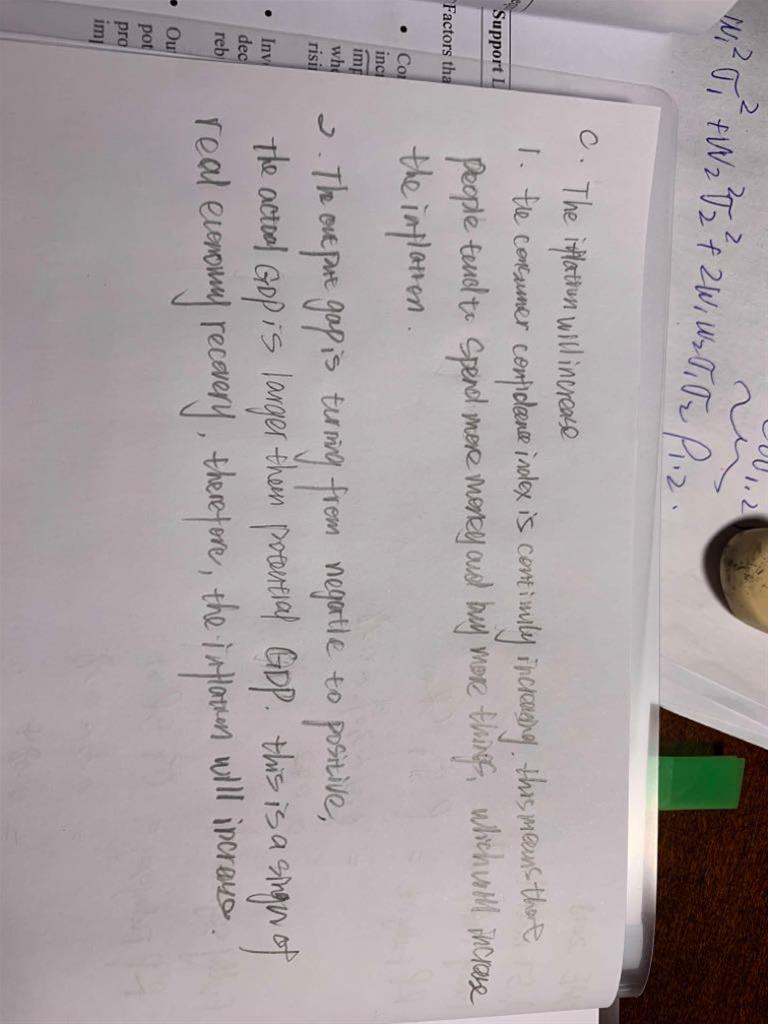 w₁²σ₁² + w₂²σ₂² + 2w₁w₂σ₁σ₂ρ₁,₂.
Support L
Factors tha
• Co
inc
imp
whe
risi
• Inv
dec
reb
• Ou
pot
pro
imp
C. The inflation will increase
1. the consumer confidence index is continuly increasing. this means that
people tend to spend more money and buy more things, which will increase
the inflation.
2. The output gap is turning from negative to positive,
the actual GDP is larger then potential GDP. this is a sign of
real economy recovery, therefore, the inflation will increase.